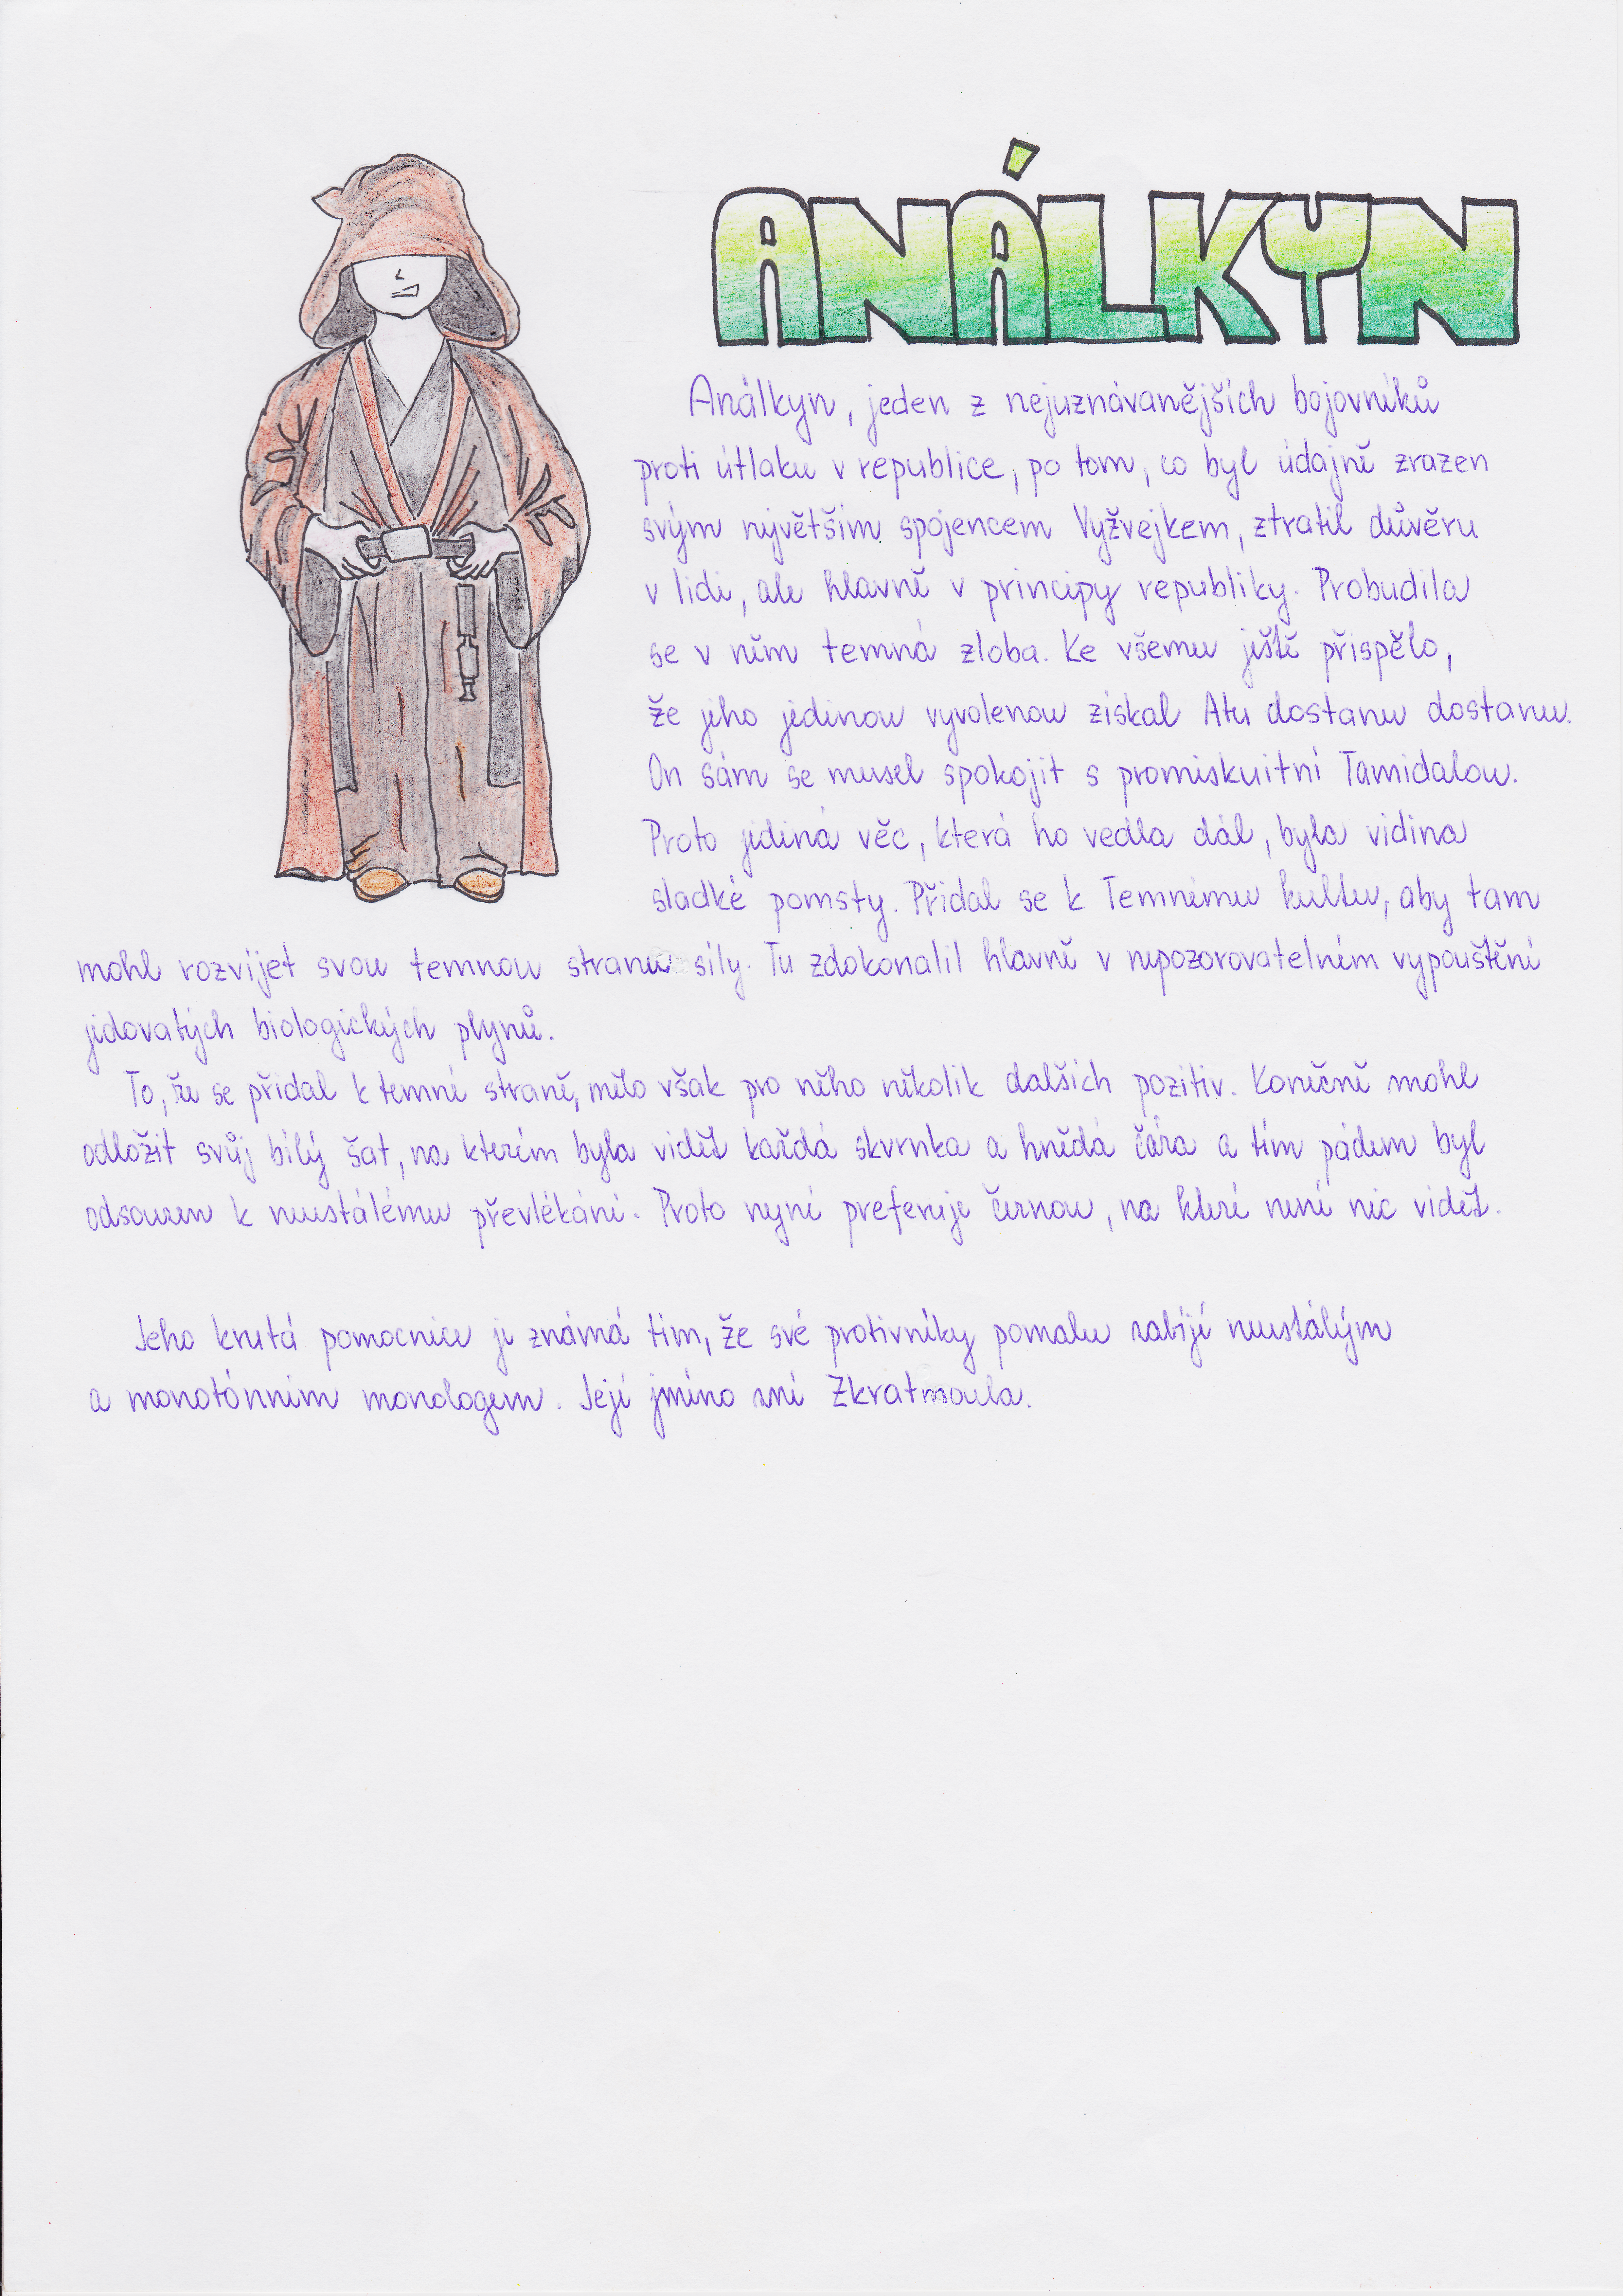 ANÁLKYN
Análkyn, jeden z nejuznávanějších bojovníků
proti útlaku v republice, po tom, co byl údajně zrazen
svým největším spojencem Vyžvejkem, ztratil důvěru
v lidi, ale hlavně v principy republiky. Probudila
se v něm temná zloba. Ke všemu ještě přispělo,
že jeho jedinou vyvolenou získal Atu dostanu dostanu.
On sám se musel spokojit s promiskuitní Tamidalou.
Proto jediná věc, která ho vedla dál, byla vidina
sladké pomsty. Přidal se k Temnému kultu, aby tam
mohl rozvíjet svou temnou stranu síly. Tu zdokonalil hlavně v nepozorovatelném vypouštění
jedovatých biologických plynů.
To, že se přidal k temné straně, mělo však pro něho několik dalších pozitiv. Konečně mohl
odložit svůj bílý šat, na kterém byla vidět každá skvrnka a hnědá čára a tím pádem byl
odsouzen k neustálému převlékání. Proto nyní preferuje černou, na které není nic vidět.
Jeho krutá pomocnice je známá tím, že své protivníky pomalu zabíjí neustálým
a monotónním monologem. Její jméno zní Zkratmoula.